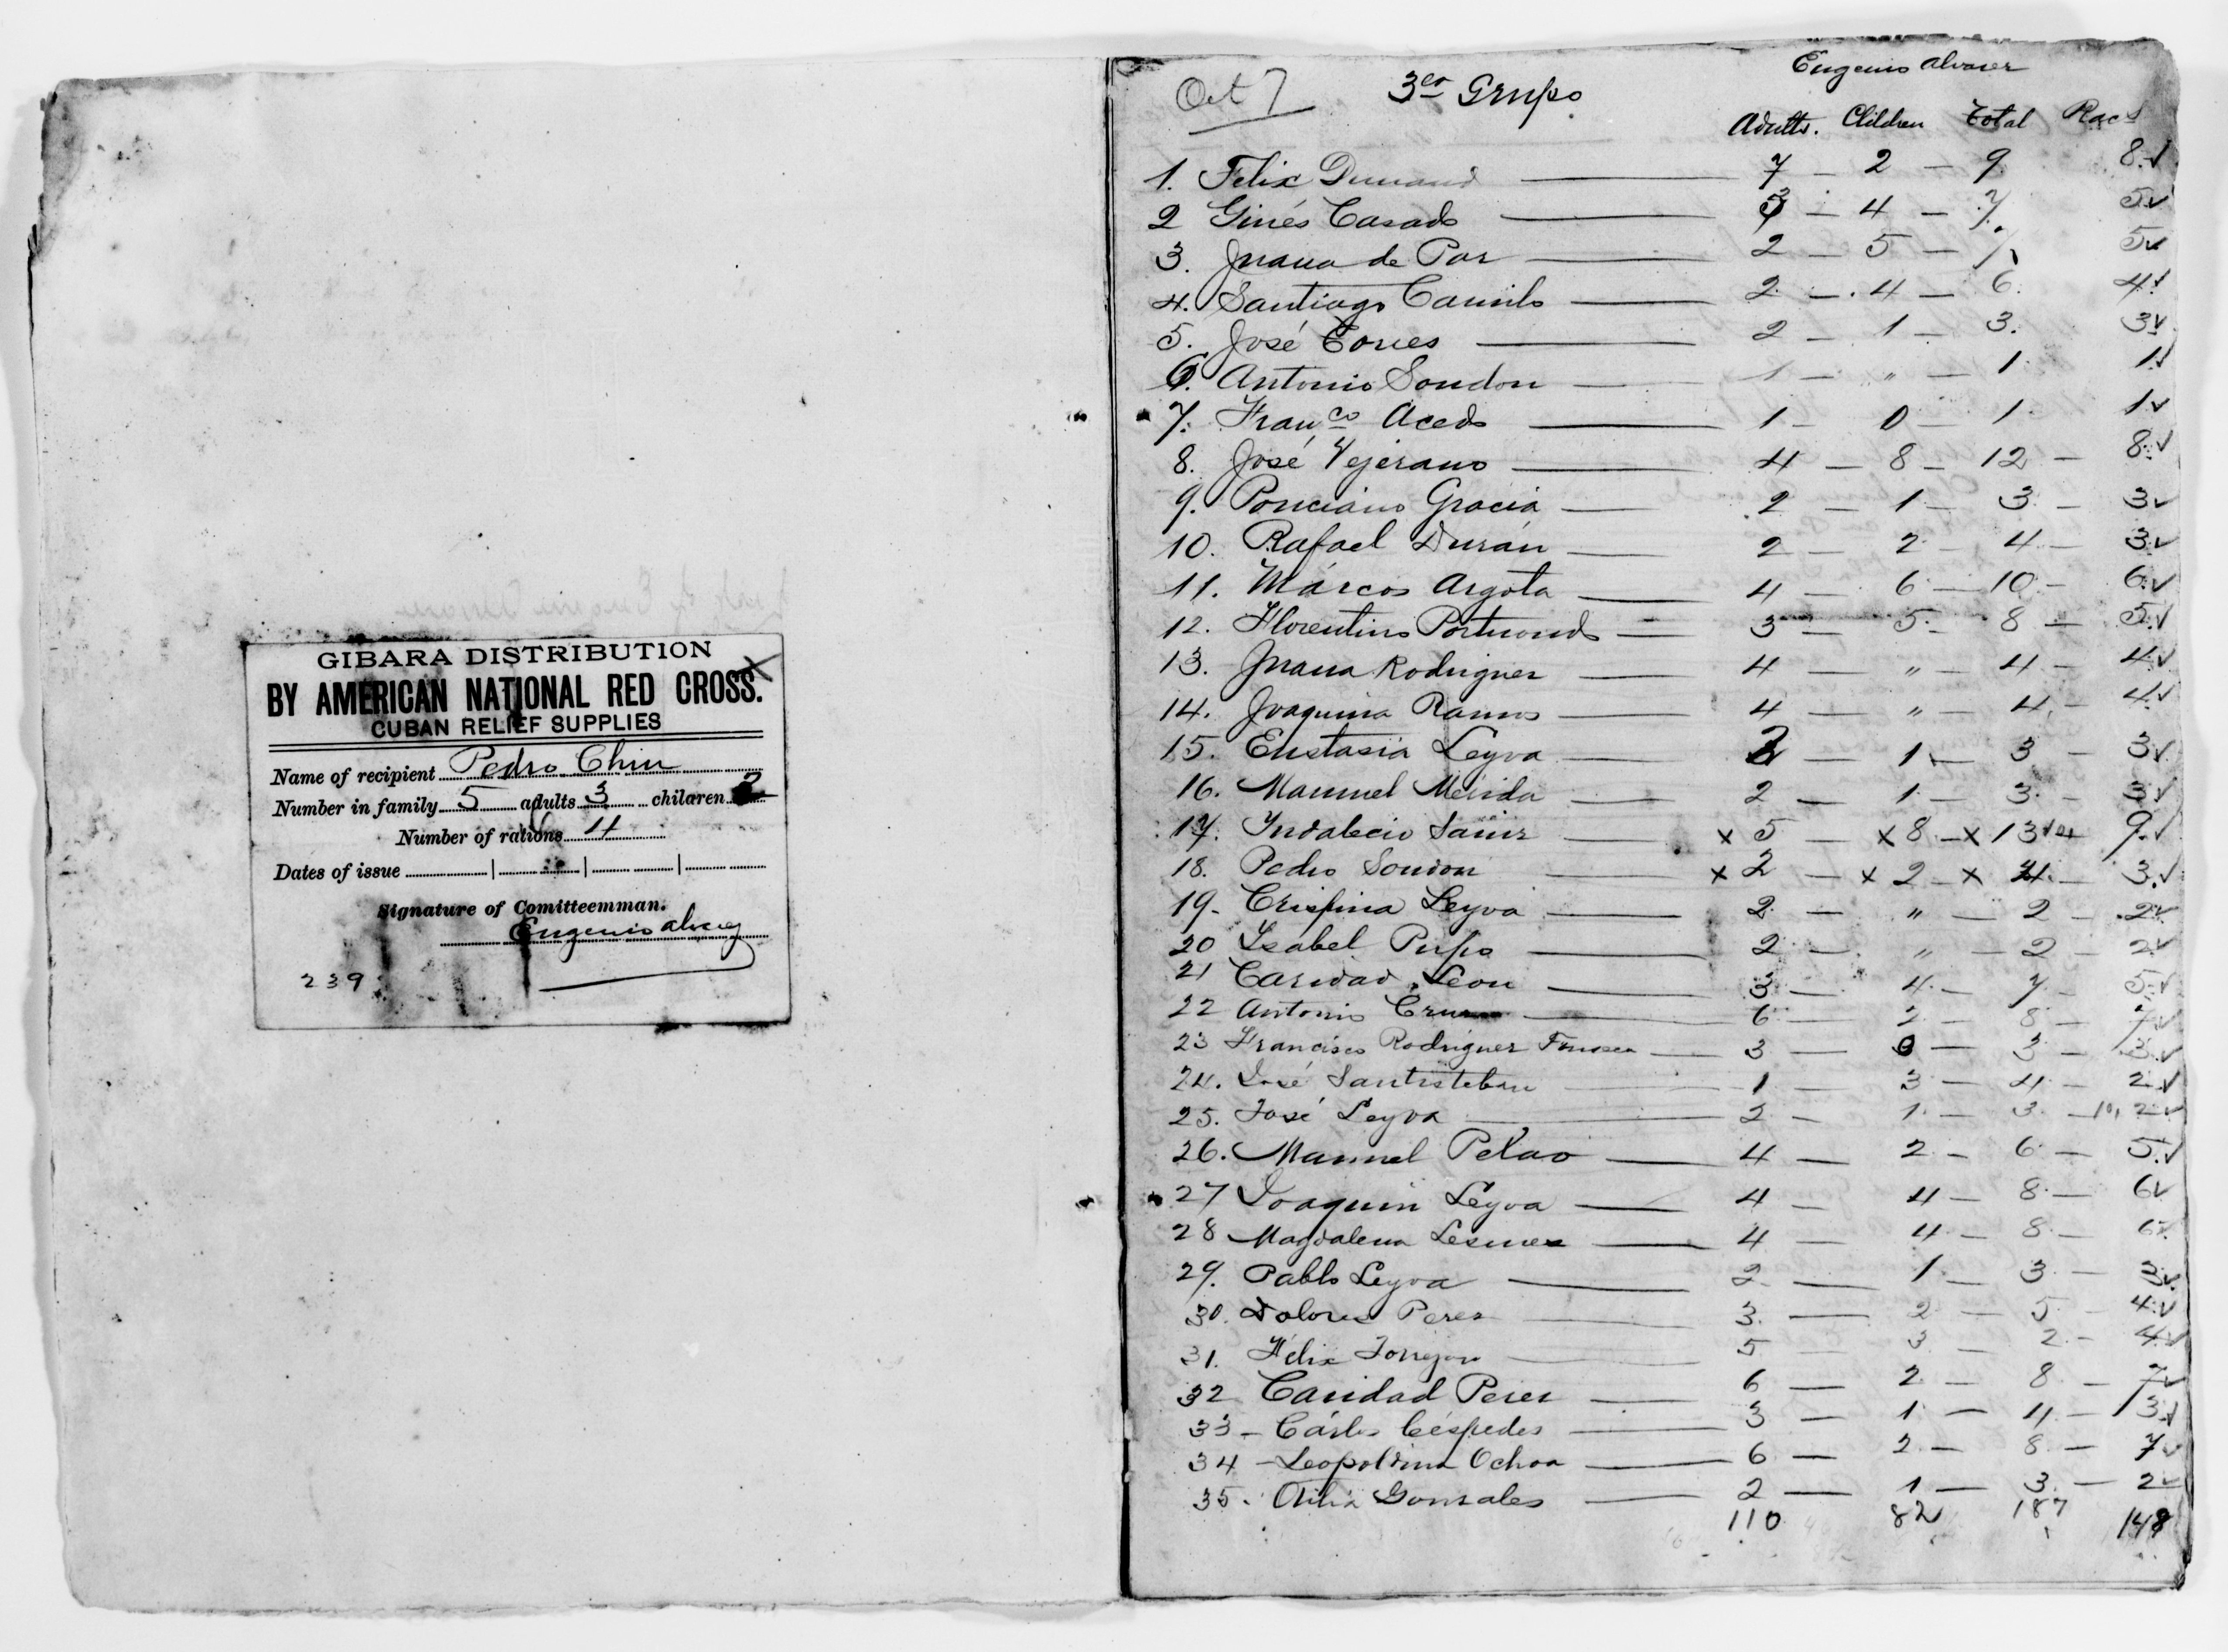 GIBARA DISTRIBUTION
BY AMERICAN NATIONAL RED CROSS.
CUBAN RELIEF SUPPLIES
Name of recipient Pedro Chin
Number in family 5 adults 3 children 2
Number of rations 4
Dates of issue
Signature of Comitteemman.
Eugenio Alvarez
239
Eugenio Alvarez
Oct 7 3er Grupo
Adults. Children Total Racs
1. Felix Durand 7 - 2 - 9 8.✓
2 Ginés Casado 3 - 4 - 7. 5✓
3. Juana de Paz 2 - 5 - 7 5✓
4. Santiago Camilo 2 - 4 - 6. 4✓
5. José Torres 2 - 1 - 3. 3✓
6. Antonio Soudon 1 - " - 1. 1✓
7. Franco Acedo 1 - 0 - 1. 1✓
8. José Yejerano 4 - 8 - 12 - 8.✓
9. Ponciano Gracia 2 - 1 - 3 - 3✓
10. Rafael Durán 2 - 2 - 4 - 3✓
11. Márcos Argota 4 - 6 - 10 - 6✓
12. Florentino Portuondo 3 - 5 - 8 - 5✓
13. Juana Rodriguez 4 - " - 4 - 4✓
14. Joaquina Ramos 4 - " - 4 - 4✓
15. Eustasia Leyva 2 - 1 - 3 - 3✓
16. Manuel Mérida 2 - 1 - 3 - 3✓
17. Yndalecio Sainz x 5 - x 8 - x 13 9.✓
18. Pedro Soudon x 2 - x 2 - x 4 - 3.✓
19. Crispina Leyva 2 - " - 2 - 2✓
20 Ysabel Pupo 2 - " - 2 - 2✓
21 Caridad Leon 3 - 4 - 7 - 5✓
22 Antonio Cruz 6 - 2 - 8 - 7✓
23 Francisco Rodriguez Fonseca 3 - 0 - 3 - 3✓
24. José Santisteban 1 - 3 - 4 - 2✓
25. José Leyva 2 - 1 - 3 - 2✓
26. Manuel Pelao 4 - 2 - 6 - 5✓
27 Joaquin Leyva 4 - 4 - 8 - 6✓
28 Magdalena Lesmes 4 - 4 - 8 - 6✓
29. Pablo Leyva 2 - 1 - 3 - 3✓
30. Dolores Perez 3. - 2 - 5 - 4✓
31. Félix Torrejon 5 - 3 - 2 - 4✓
32 Caridad Perez 6 - 2 - 8 - 7✓
33 - Cárlos Céspedes 3 - 1 - 4 - 3✓
34 - Leopoldina Ochoa 6 - 2 - 8 - 7✓
35. Gonzales 2 - 1 - 3 - 2✓
110 82 187 148